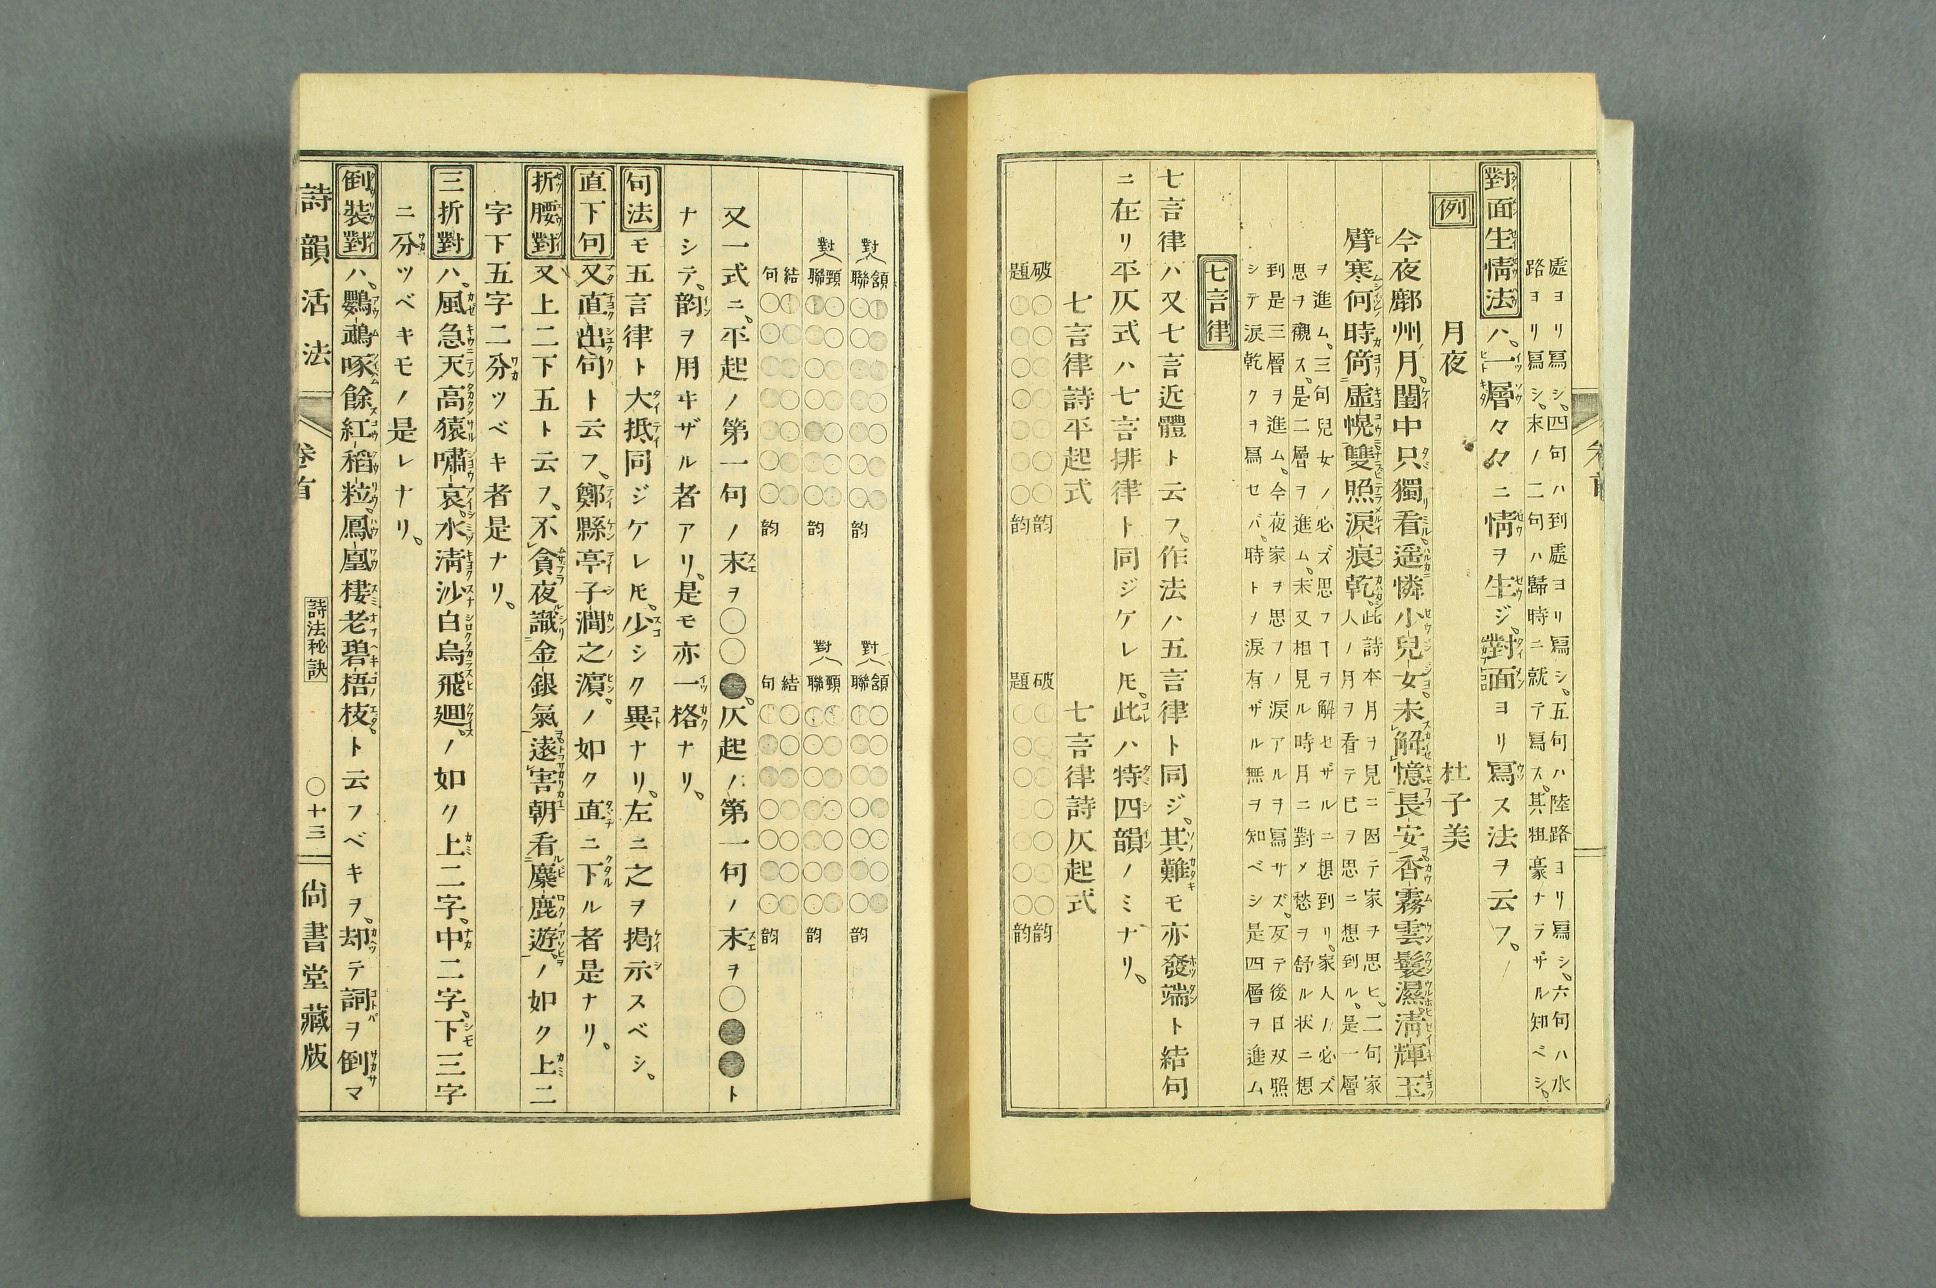 處ヨリ寫シ、四句ハ到處ヨリ寫シ、五句ハ陸路ヨリ寫シ、六句ハ水
路ヨリ寫シ、末ノ二句ハ歸時ニ就テ寫ス、其粗豪ナラザル知ベシ。
對面生情法ハ、一層々々ニ情ヲ生ジ、對面ヨリ寫ス法ヲ云フ。
例
月夜 杜子美
今夜鄜州月。閨中只獨看。遙憐小兒女。未解憶長安。香霧雲鬟濕。淸輝玉
臂寒。何時倚虛幌。雙照淚痕乾。
此詩本月ヲ見ニ因テ家ヲ思ヒ、二句家
人ノ月ヲ看テ已ヲ思ニ想到ル、是一層
ヲ進ム、三句兒女ノ必ズ思フヿヲ解セザルニ想到リ、家人ノ必ズ
思ヲ襯ス、是二層ヲ進ム、末又相見ル時月ニ對メ愁ヲ舒ル状ニ想
到是三層ヲ進ム、今夜家ヲ思フノ淚アルヲ寫サズ、反テ後日双照
シテ淚乾クヲ爲セバ、時トノ淚有ザル無ヲ知ベシ是四層ヲ進ム
七言律
七言律ハ又七言近體ト云フ。作法ハ五言律ト同ジ。其難モ亦發端ト結句
ニ在リ平仄式ハ七言排律ト同ジケレ𪜈。此ハ特四韻ノミナリ。
七言律詩平起式 七言律詩仄起式
破題 韵 韵 破題 韵 韵
對 頷聯 韵 對 頷聯 韵
對 頸聯 韵 對 頸聯 韵
結句 韵 結句 韵
又一式ニ。平起ノ第一句ノ末ヲ○○●。仄起ノ第一句ノ末ヲ○●●ト
ナシテ。韵ヲ用ヰザル者アリ。是モ亦一格ナリ。
句法モ五言律ト大抵同ジケレ𪜈。少シク異ナリ。左ニ之ヲ掲示スベシ。
直下句又直出句ト云フ、鄭縣亭子澗之濵。ノ如ク直ニ下ル者是ナリ。
折腰對又上二下五ト云フ、不貪夜識金銀氣。遠害朝看麋鹿遊。ノ如ク上二
字下五字二分ツベキ者是ナリ。
三折對ハ、風急天高猿嘯哀。水淸沙白鳥飛廻。ノ如ク上二字。中二字。下三字
ニ分ツベキモノ是レナリ。
倒裝對ハ、鸚鵡啄餘紅稻粒。鳳凰棲老碧梧枝。ト云フベキヲ。却テ詞ヲ倒マ
詩韻活法 卷首 詩法秘訣 ○十三 尚書堂藏版